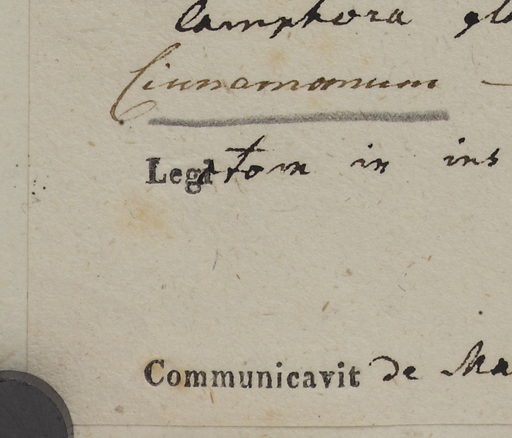 Camphora gl
Cinnamomum -
Legit in ins
Communicavit de Ma